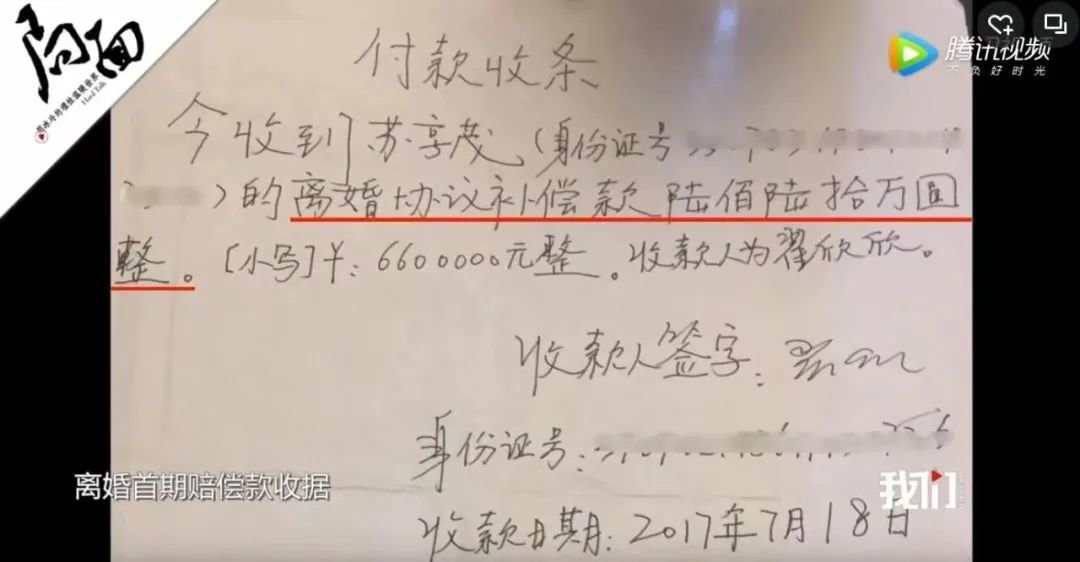 局面
用冰冷的理性温暖世界
Hard Talk
腾讯视频
不负好时光
付款收条
今收到苏享茂(身份证号
)的离婚协议补偿款陆佰陆拾万圆
整。[小写]¥:6600000元整。收款人为翟欣欣。
收款人签字:
身份证号:
离婚首期赔偿款收据
我们
收款日期:2017年7月18日